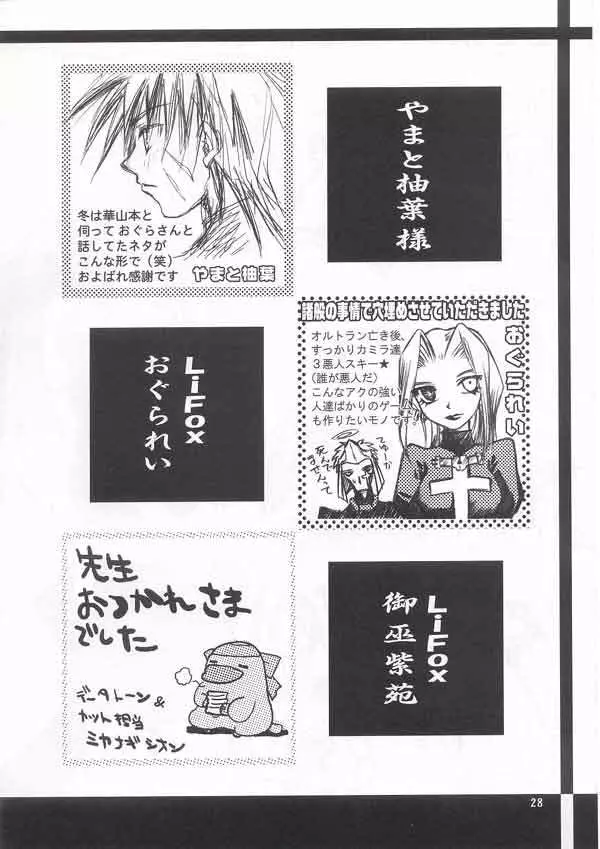 やまと柚葉様
冬は華山本と
伺って おぐらさんと
話してたネタが
こんな形で（笑）
およばれ感謝です
やまと柚葉
諸般の事情で穴埋めさせていただきました
おぐられい
オルトラン亡き後、
すっかりカミラ達
３悪人スキー★
（誰が悪人だ）
こんなアクの強い
人達ばかりのゲーム
も作りたいモノです！
てゆーか
死んで
ませんって
LiFox
おぐられい
先生
おつかれさま
でした
データトーン&
カット担当
ミカナギシオン
LiFox
御巫紫苑
28